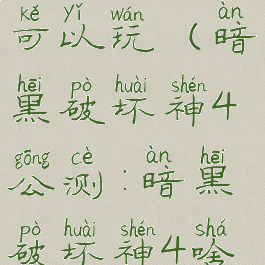 kě yǐ wán àn
可以玩（暗
hēi pò huài shén
黑破坏神4
gōng cè àn hēi
公测：暗黑
pò huài shén shá
破坏神4啥